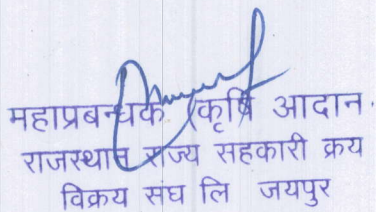 महाप्रबन्धक (कृषि आदान.
राजस्थान राज्य सहकारी क्रय
विक्रय संघ लि जयपुर